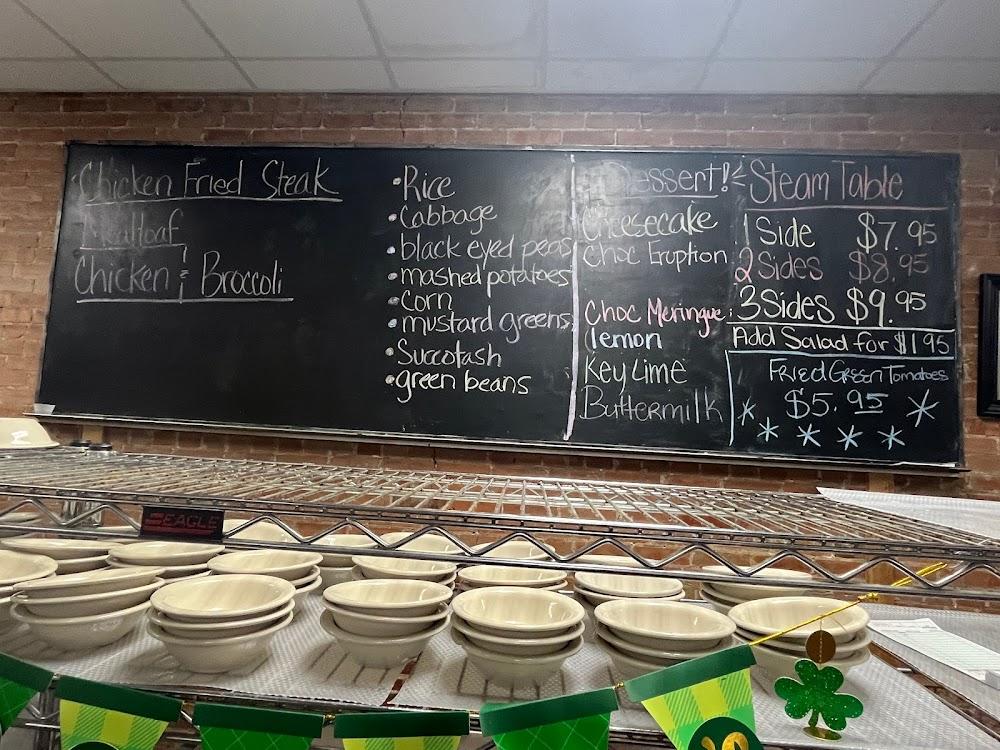 Chicken Fried Steak
Meatloaf
Chicken & Broccoli
•Rice
•Cabbage
•black eyed peas
•mashed potatoes
•Corn
•mustard greens
•Succotash
•green beans
Dessert!
Cheesecake
Choc Eruption
Choc Meringue
lemon
Key Lime
Buttermilk
Steam Table
1 Side $7.95
2 Sides $8.95
3 Sides $9.95
Add Salad for $1.95
Fried Green Tomatoes
$5.95
EAGLE